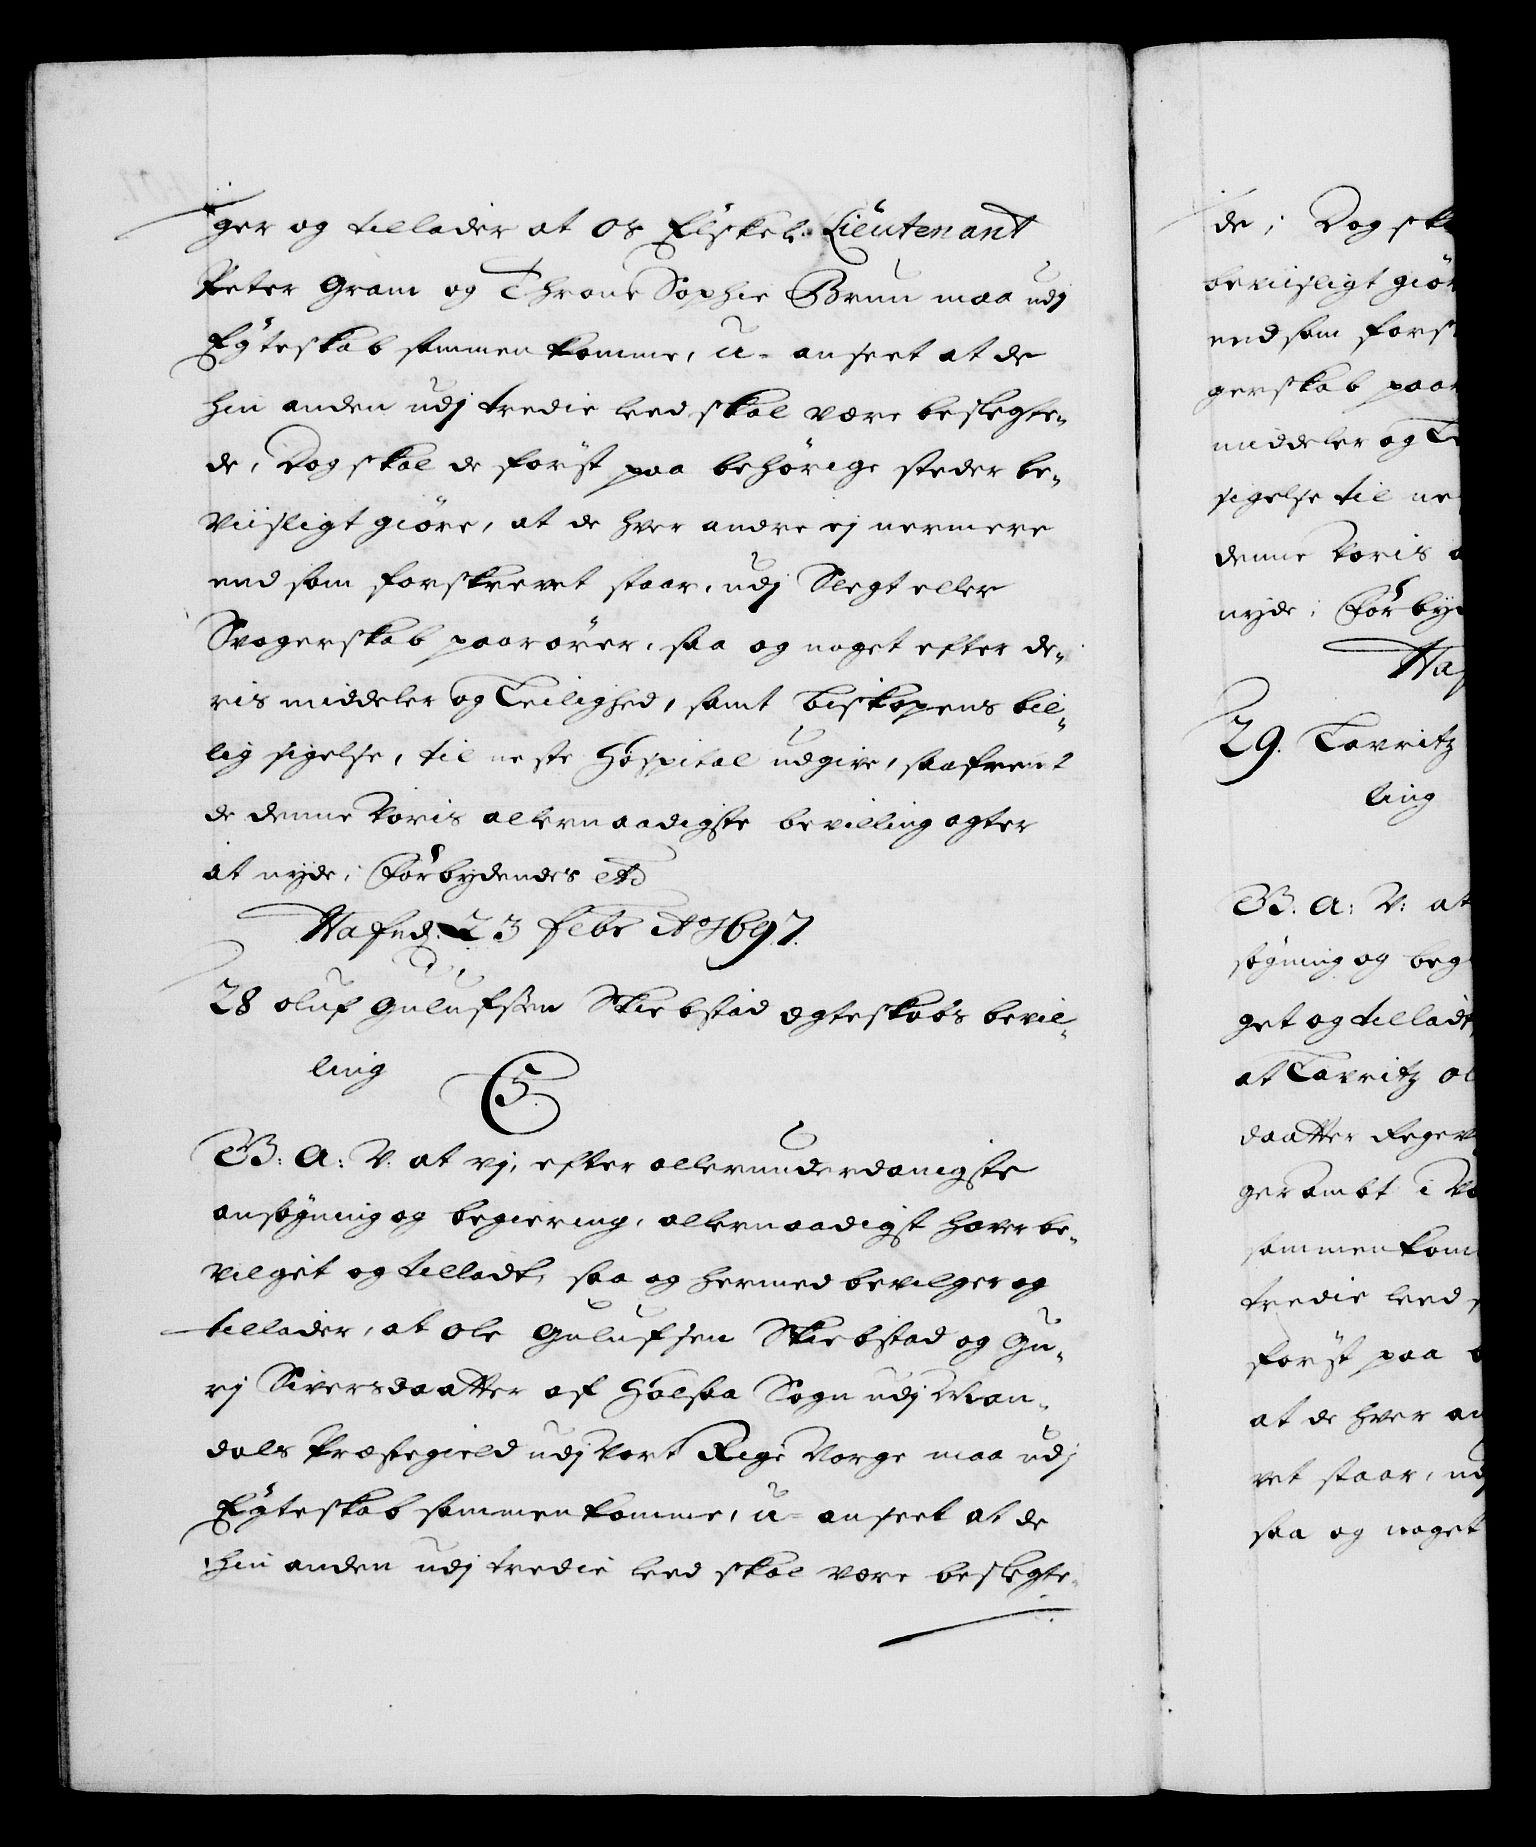 ger og tillader at os Elskel. Lieutenant
Peter Gram og Throne Sophie Brun maa udj
Egteskab sammen komme, u-anseet at de
hin anden udj tredie leed skal være beslegte-
de, Dog skal de først paa behørige steder be-
viisligt giøre, at de hver andre ej nermere
end som forskrevet staar, udj Slegt eller
Svogerskab paarører, saa og noget efter de-
ris middeler og Leilighed, samt Biskopens bil-
lig sigelse, til neste Hospital udgive, saafremt
de denne Voris allernaadigste bevilling agter
at nyde; Forbydendes etc
Hafnd: 23 febr Ao 1697.
28 Oluf Gulufssen Skiebstad egteskabs bevil-
ling
C5.
G. A: V: at vj, efter allerunderdanigste
ansøgning og begiering, allernaadigst haver be-
vilget og tilladt, saa og hermed bevilger og
tillader, at Ole Gulufsen Skiebstad og Gu-
rj Siversdaatter af Halsaa Sogn udj Man-
dals Præstegield udj Vort Rige Norge maa udj
Egteskab sammen komme, u-anseet at de
hin anden udj tredie leed skal være beslegte-
de; Dog ska
beviisligt giør
end som forsk
gerskab paar
middeler og Le
sigelse til ne
denne Voris a
nyde; Forbyd
Haf
29. Lavritz
ling
G. A: V: at
søgning og beg
get og tilladt,
at Lavritz Ol
daatter
gerambt i No
sammen kom
tredie leed s
først paa b
at de hver an
vet staar, udj
saa og noget